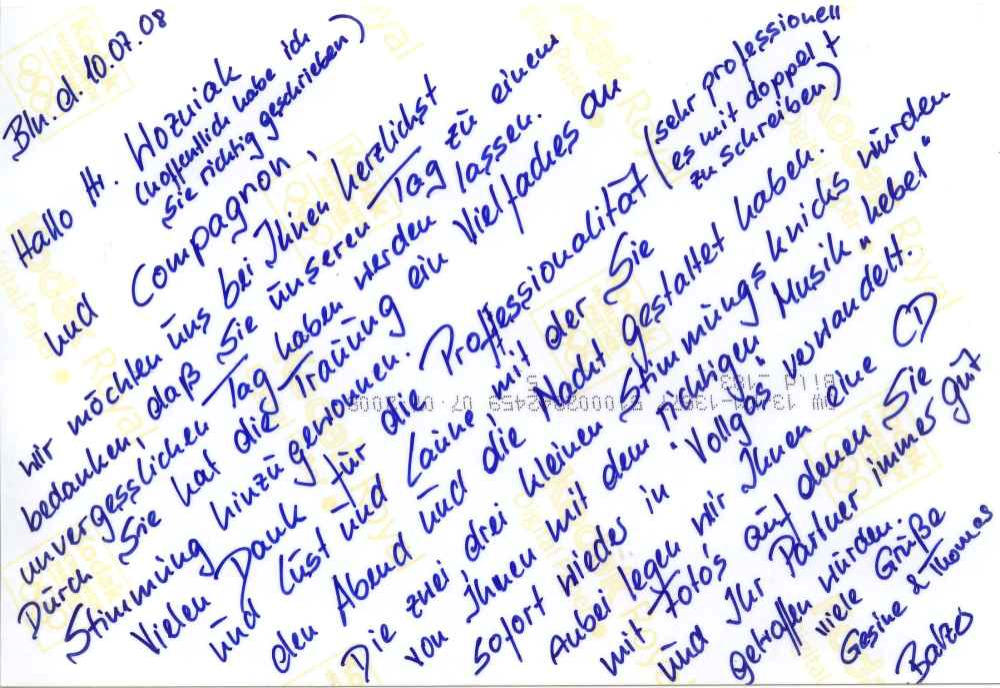 Bln. d. 10.07.08
Hallo Hr. Wozniak
(hoffentlich habe ich
sie richtig geschrieben)
und Compagnon,
wir möchten uns bei Ihnen herzlichst
bedanken, daß Sie unseren Tag zu einem
unvergesslichen Tag haben werden lassen.
Durch Sie hat die Trauung ein Vielfaches an
Stimmung hinzugewonnen.
Vielen Dank für die Proffessionalität (sehr professionell
es mit doppel f
zu schreiben)
und Lust und Laune, mit der Sie
den Abend und die Nacht gestaltet haben.
Die zwei drei kleinen Stimmungsknicks wurden
von Ihnen mit dem richtigen Musik "hebel"
sofort wieder in "Vollgas" verwandelt.
Anbei legen wir Ihnen eine CD
mit Foto's auf denen Sie
und Ihr Partner immer gut
getroffen wurden.
Viele Grüße
Gesine & Thomas